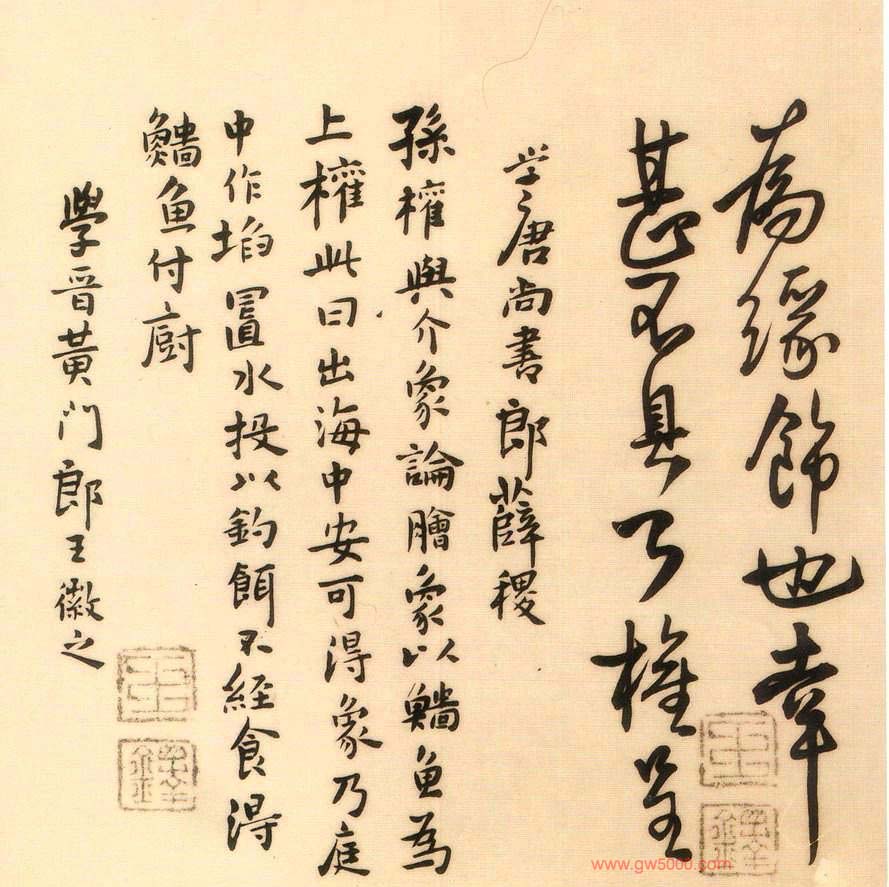 緣飾也幸
甚不具權呈
学唐尚書郎薛稷
孫權與介象論膾象以鯔魚為
上權此曰出海中安可得象乃庭
中作埳置水投以鈎餌不經食得
鯔魚付廚
學晉黃門郎王徽之
www.gw5000.com